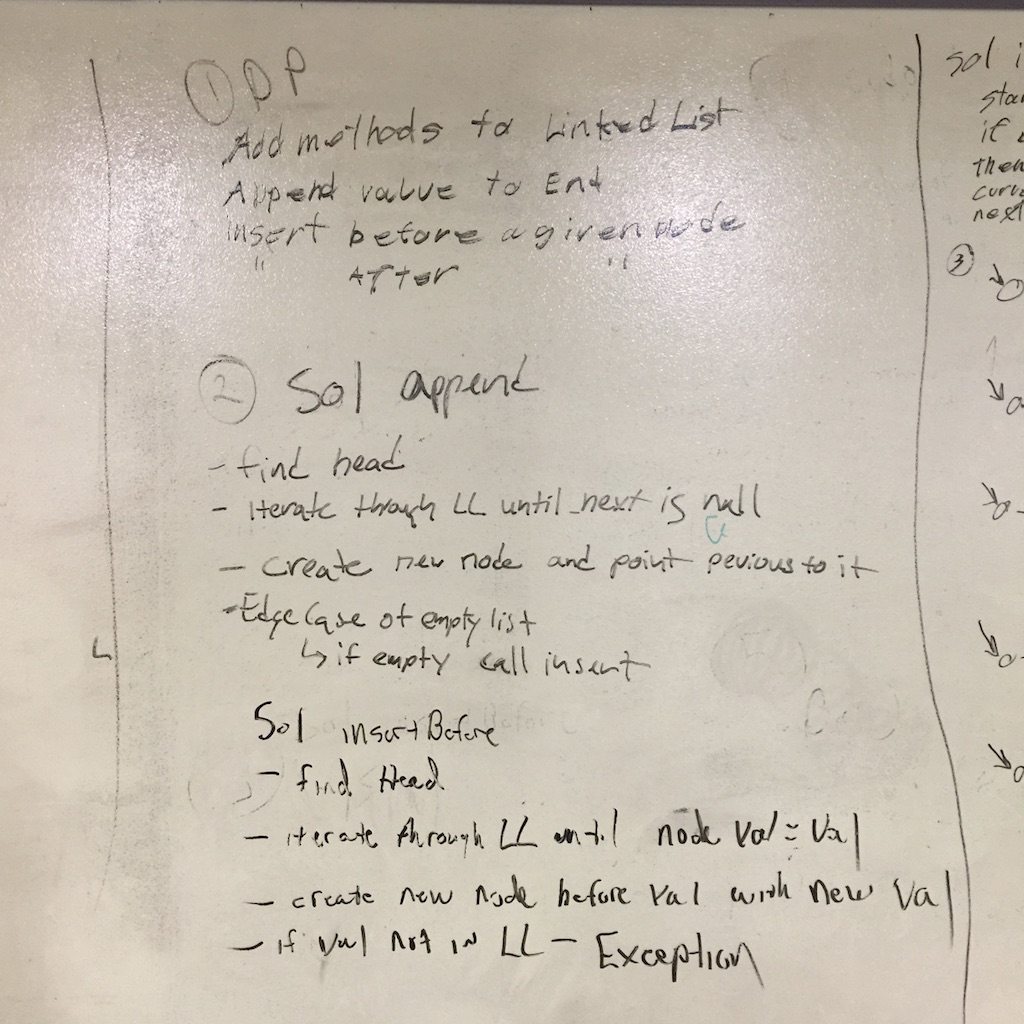 ① DP
Add methods to Linked List
Append value to End
insert before a given node
" After "
② Sol append
- find head
- iterate through LL until _next is null
- create new node and point pevious to it
- Edge Case of empty list
↳ if empty call insert
Sol insertBefore
- find Head
- iterate through LL until node val = val
- create new node before val with new val
- if val not in LL - Exception
sol i
star
if
then
curr
next
③